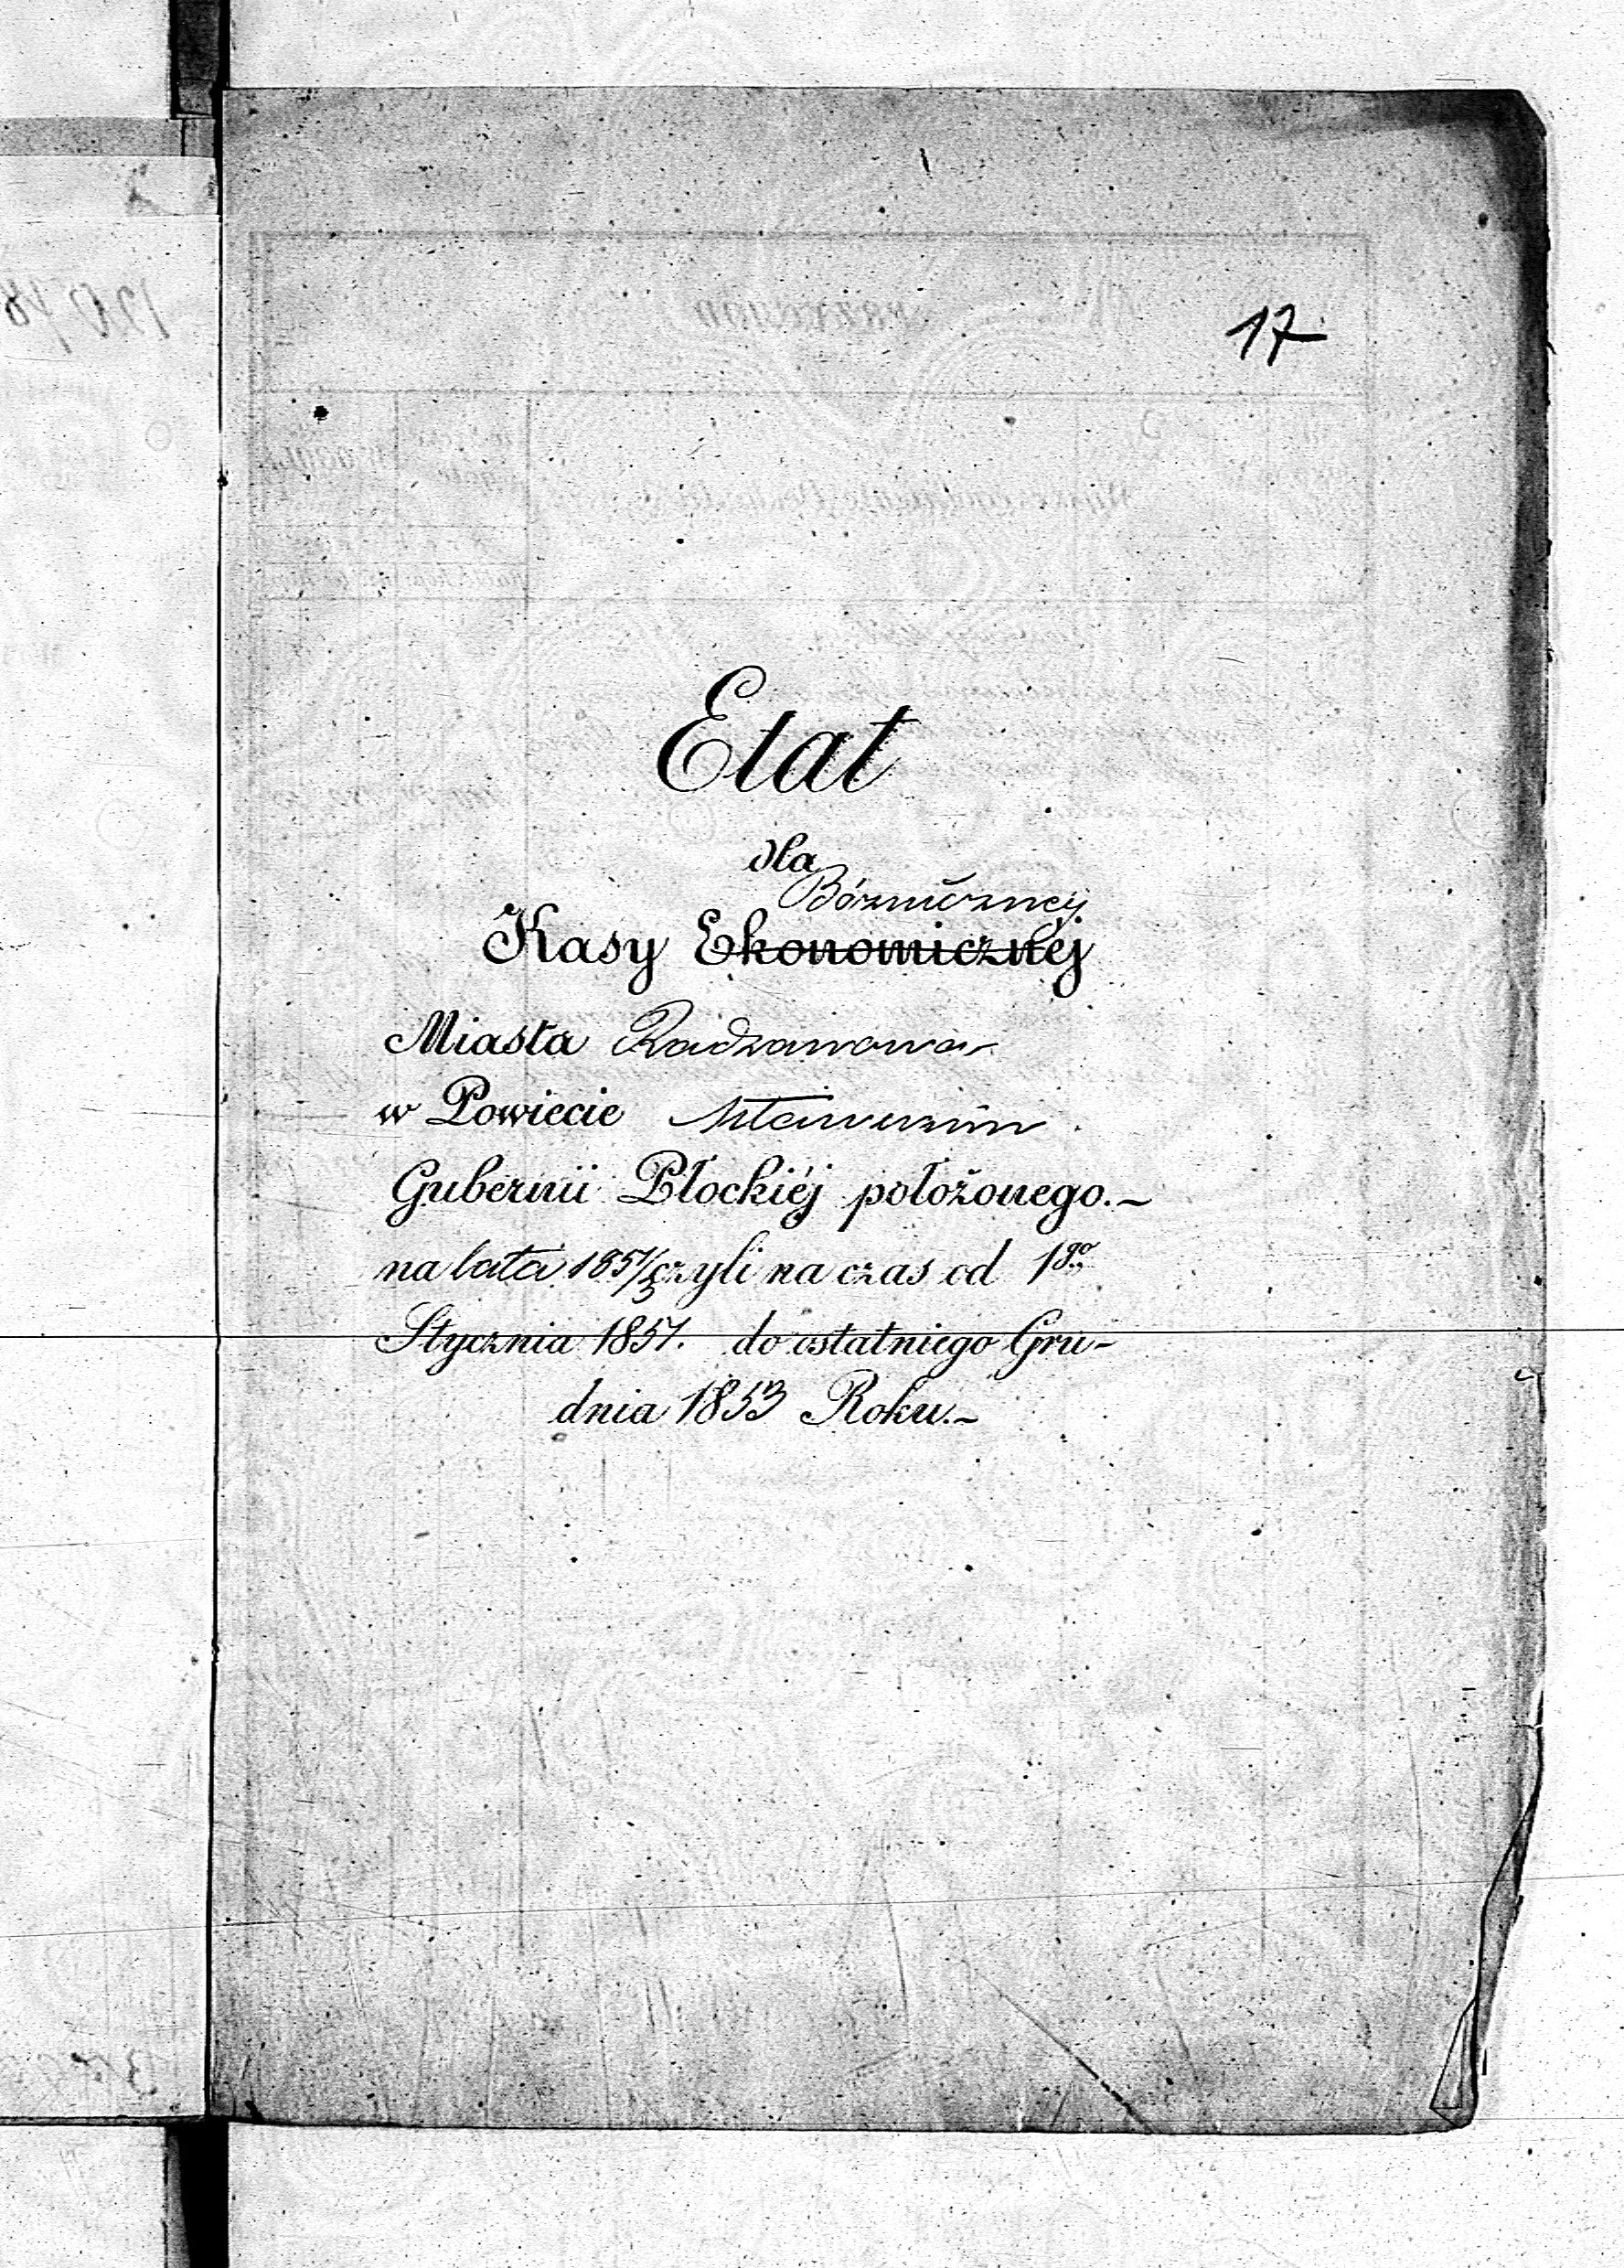 17
Etat
dla
Bóżnicznej
Kasy Ekonomicznéj
Miasta Radzanowa
w Powiecie Mławskim
Gubernii Płockiéj położonego.~
na lata 1851/3 czyli na czas od 1go
Stycznia 1851. do ostatniego Gru-
dnia 1853 Roku.~